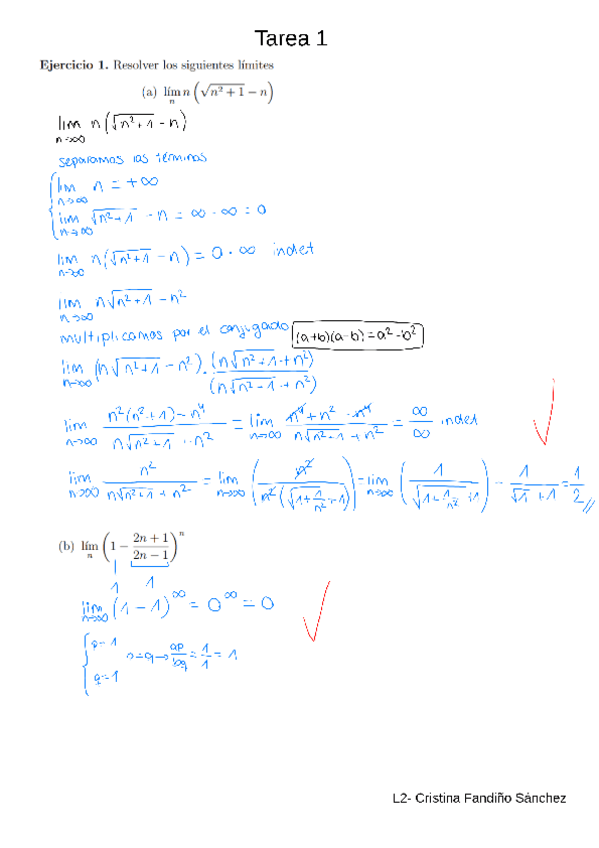 Tarea 1
Ejercicio 1. Resolver los siguientes límites
(a) lím_n n (√(n² + 1) − n)
lim_{n→∞} n (√(n²+1) − n)
separamos los términos
lim_{n→∞} n = +∞
lim_{n→∞} √(n²+1) − n = ∞ − ∞ = 0
lim_{n→∞} n(√(n²+1) − n) = 0 · ∞ indet
lim_{n→∞} n√(n²+1) − n²
multiplicamos por el conjugado (a+b)(a−b) = a² − b²
lim_{n→∞} (n√(n²+1) − n²) · (n√(n²+1) + n²) / (n√(n²−1) + n²)
lim_{n→∞} (n²(n²+1) − n⁴) / (n√(n²+1) − n²) = lim_{n→∞} (n⁴ + n² − n⁴) / (n√(n²+1) + n²) = ∞/∞ indet
lim_{n→∞} n² / (n√(n²+1) + n²) = lim_{n→∞} (n² / (n²(√(1+1/n²) + 1))) = lim_{n→∞} (1 / (√(1+1/n²) + 1)) − 1 / (√1 + 1) = 1/2 //
(b) lím_n (1 − (2n + 1)/(2n − 1))^n
1 1
lim_{n→∞} (1 − 1)^∞ = 0^∞ = 0
p=1
q=1
→ ap/bq = 1/1 = 1
L2- Cristina Fandiño Sánchez